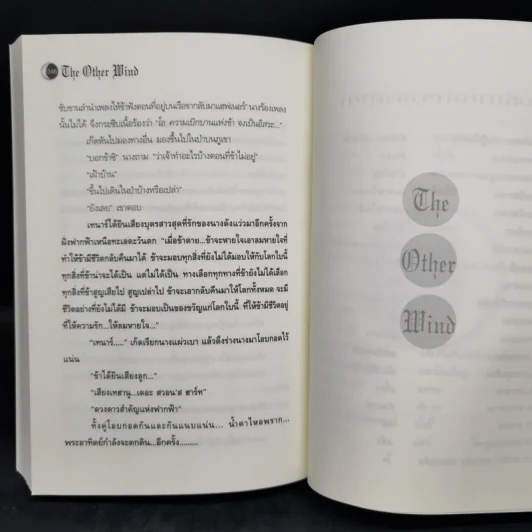 The Other Wind
ขับขานลำนำเพลงให้ข้าฟังตอนที่อยู่บนเรือขากลับมาแฮฟเนอร์ นางร้องเพลง
นั้นไม่ได้ จึงกระซิบเนื้อร้องว่า "โอ ความเบิกบานแห่งข้า จงเป็นอิสระ..."
เก็ดหันไปมองทางอื่น มองขึ้นไปในป่าบนภูเขา
"บอกข้าซิ" นางถาม "ว่าเจ้าทำอะไรบ้างตอนที่ข้าไม่อยู่"
"เฝ้าบ้าน"
"ขึ้นไปเดินในป่าบ้างหรือเปล่า"
"ยังเลย" เขาตอบ
เทนาร์ได้ยินเสียงบุตรสาวสุดที่รักของนางดังแว่วมาอีกครั้งจาก
ฝั่งฟากฟ้าเหนือทะเลตะวันตก "เมื่อข้าตาย...ข้าจะหายใจเอาลมหายใจที่
ทำให้ข้ามีชีวิตกลับคืนมาได้ ข้าจะมอบทุกสิ่งที่ยังไม่ได้มอบให้กับโลกใบนี้
ทุกสิ่งที่ข้าน่าจะได้เป็น แต่ไม่ได้เป็น ทางเลือกทุกทางที่ข้ายังไม่ได้เลือก
ทุกสิ่งที่ข้าสูญเสียไป สูญเปล่าไป ข้าจะเอากลับคืนมาให้โลกทั้งหมด จะมี
ชีวิตอย่างที่ยังไม่ได้มี ข้าจะมอบเป็นของขวัญแก่โลกใบนี้ ที่ให้ข้ามีชีวิตอยู่
ที่ให้ความรัก...ให้ลมหายใจ..."
"เทนาร์....." เก็ดเรียกนางแผ่วเบา แล้วดึงร่างนางมาโอบกอดไว้
แน่น
"ข้าได้ยินเสียงลูก..."
"เสียงเทฮานู...เดอะ สวอน'ส ฮาร์ท"
"ดวงดาวสำคัญแห่งฟากฟ้า"
ทั้งคู่โอบกอดกันและกันแนบแน่น... น้ำตาไหลพราก...
พระอาทิตย์กำลังจะตกดิน...อีกครั้ง.........
The
Other
Wind